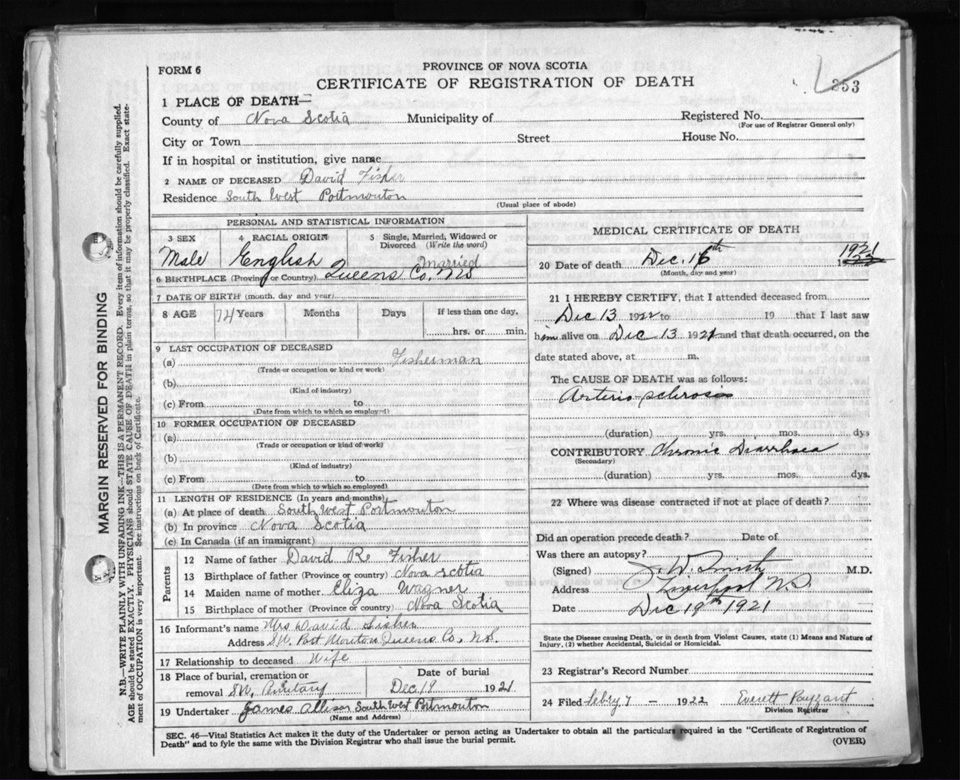 FORM 6
PROVINCE OF NOVA SCOTIA
CERTIFICATE OF REGISTRATION OF DEATH
353
1 PLACE OF DEATH—
County of Nova Scotia Municipality of Registered No.
(For use of Registrar General only)
City or Town Street House No.
If in hospital or institution, give name
2 NAME OF DECEASED David Fisher
Residence South West Portmouton
(Usual place of abode)
PERSONAL AND STATISTICAL INFORMATION
3 SEX 4 RACIAL ORIGIN 5 Single, Married, Widowed or Divorced (Write the word)
Male English Married
6 BIRTHPLACE (Province or Country) Queens Co, NS
7 DATE OF BIRTH (month, day and year)
8 AGE 74 Years Months Days If less than one day,
hrs. or min.
9 LAST OCCUPATION OF DECEASED
(a) Fisherman
(Trade or occupation or kind or work)
(b)
(Kind of industry)
(c) From to
(Date from which to which so employed)
10 FORMER OCCUPATION OF DECEASED
(a)
(Trade or occupation or kind of work)
(b)
(Kind of industry)
(c) From to
(Date from which to which so employed)
11 LENGTH OF RESIDENCE (In years and months)
(a) At place of death South West Portmouton
(b) In province Nova Scotia
(c) In Canada (if an immigrant)
Parents
12 Name of father David R. Fisher
13 Birthplace of father (Province or country) Nova scotia
14 Maiden name of mother Eliza Wagner
15 Birthplace of mother (Province or Country) Nova Scotia
16 Informant's name Mrs David Fisher
Address S.W. Port Mouton Queens Co, N.S.
17 Relationship to deceased Wife
18 Place of burial, cremation or Date of burial
removal S.W. Dec 19 1921
19 Undertaker James Allison South West Portmouton
(Name and Address)
MEDICAL CERTIFICATE OF DEATH
20 Date of death Dec. 16th 1921
(Month, day and year)
21 I HEREBY CERTIFY, that I attended deceased from
Dec 13 1922 to 19 that I last saw
him alive on Dec 13 1921 and that death occurred, on the
date stated above, at m.
The CAUSE OF DEATH was as follows:
Arterio-sclerosis
(duration) yrs. mos. dys
CONTRIBUTORY Chronic Diarrhoea
(Secondary)
(duration) yrs. mos. dys.
22 Where was disease contracted if not at place of death?
Did an operation precede death? Date of
Was there an autopsy?
(Signed) J. W. Smith M.D.
Address Liverpool N.S.
Date Dec 19th 1921
State the Disease causing Death, or in death from Violent Causes, state (1) Means and Nature of
Injury, (2) whether Accidental, Suicidal or Homicidal.
23 Registrar's Record Number
24 Filed Febry 7 — 1922 Everett Payzant
Division Registrar
SEC. 46—Vital Statistics Act makes it the duty of the Undertaker or person acting as Undertaker to obtain all the particulars required in the "Certificate of Registration of
Death" and to fyle the same with the Division Registrar who shall issue the burial permit.
(OVER)
MARGIN RESERVED FOR BINDING
N.B.—WRITE PLAINLY WITH UNFADING INK—THIS IS A PERMANENT RECORD. Every item of information should be carefully supplied.
AGE should be stated EXACTLY. PHYSICIANS should STATE CAUSE OF DEATH in plain terms, so that it may be properly classified. Exact state-
ment of OCCUPATION is very important. See instructions on back of Certificate.